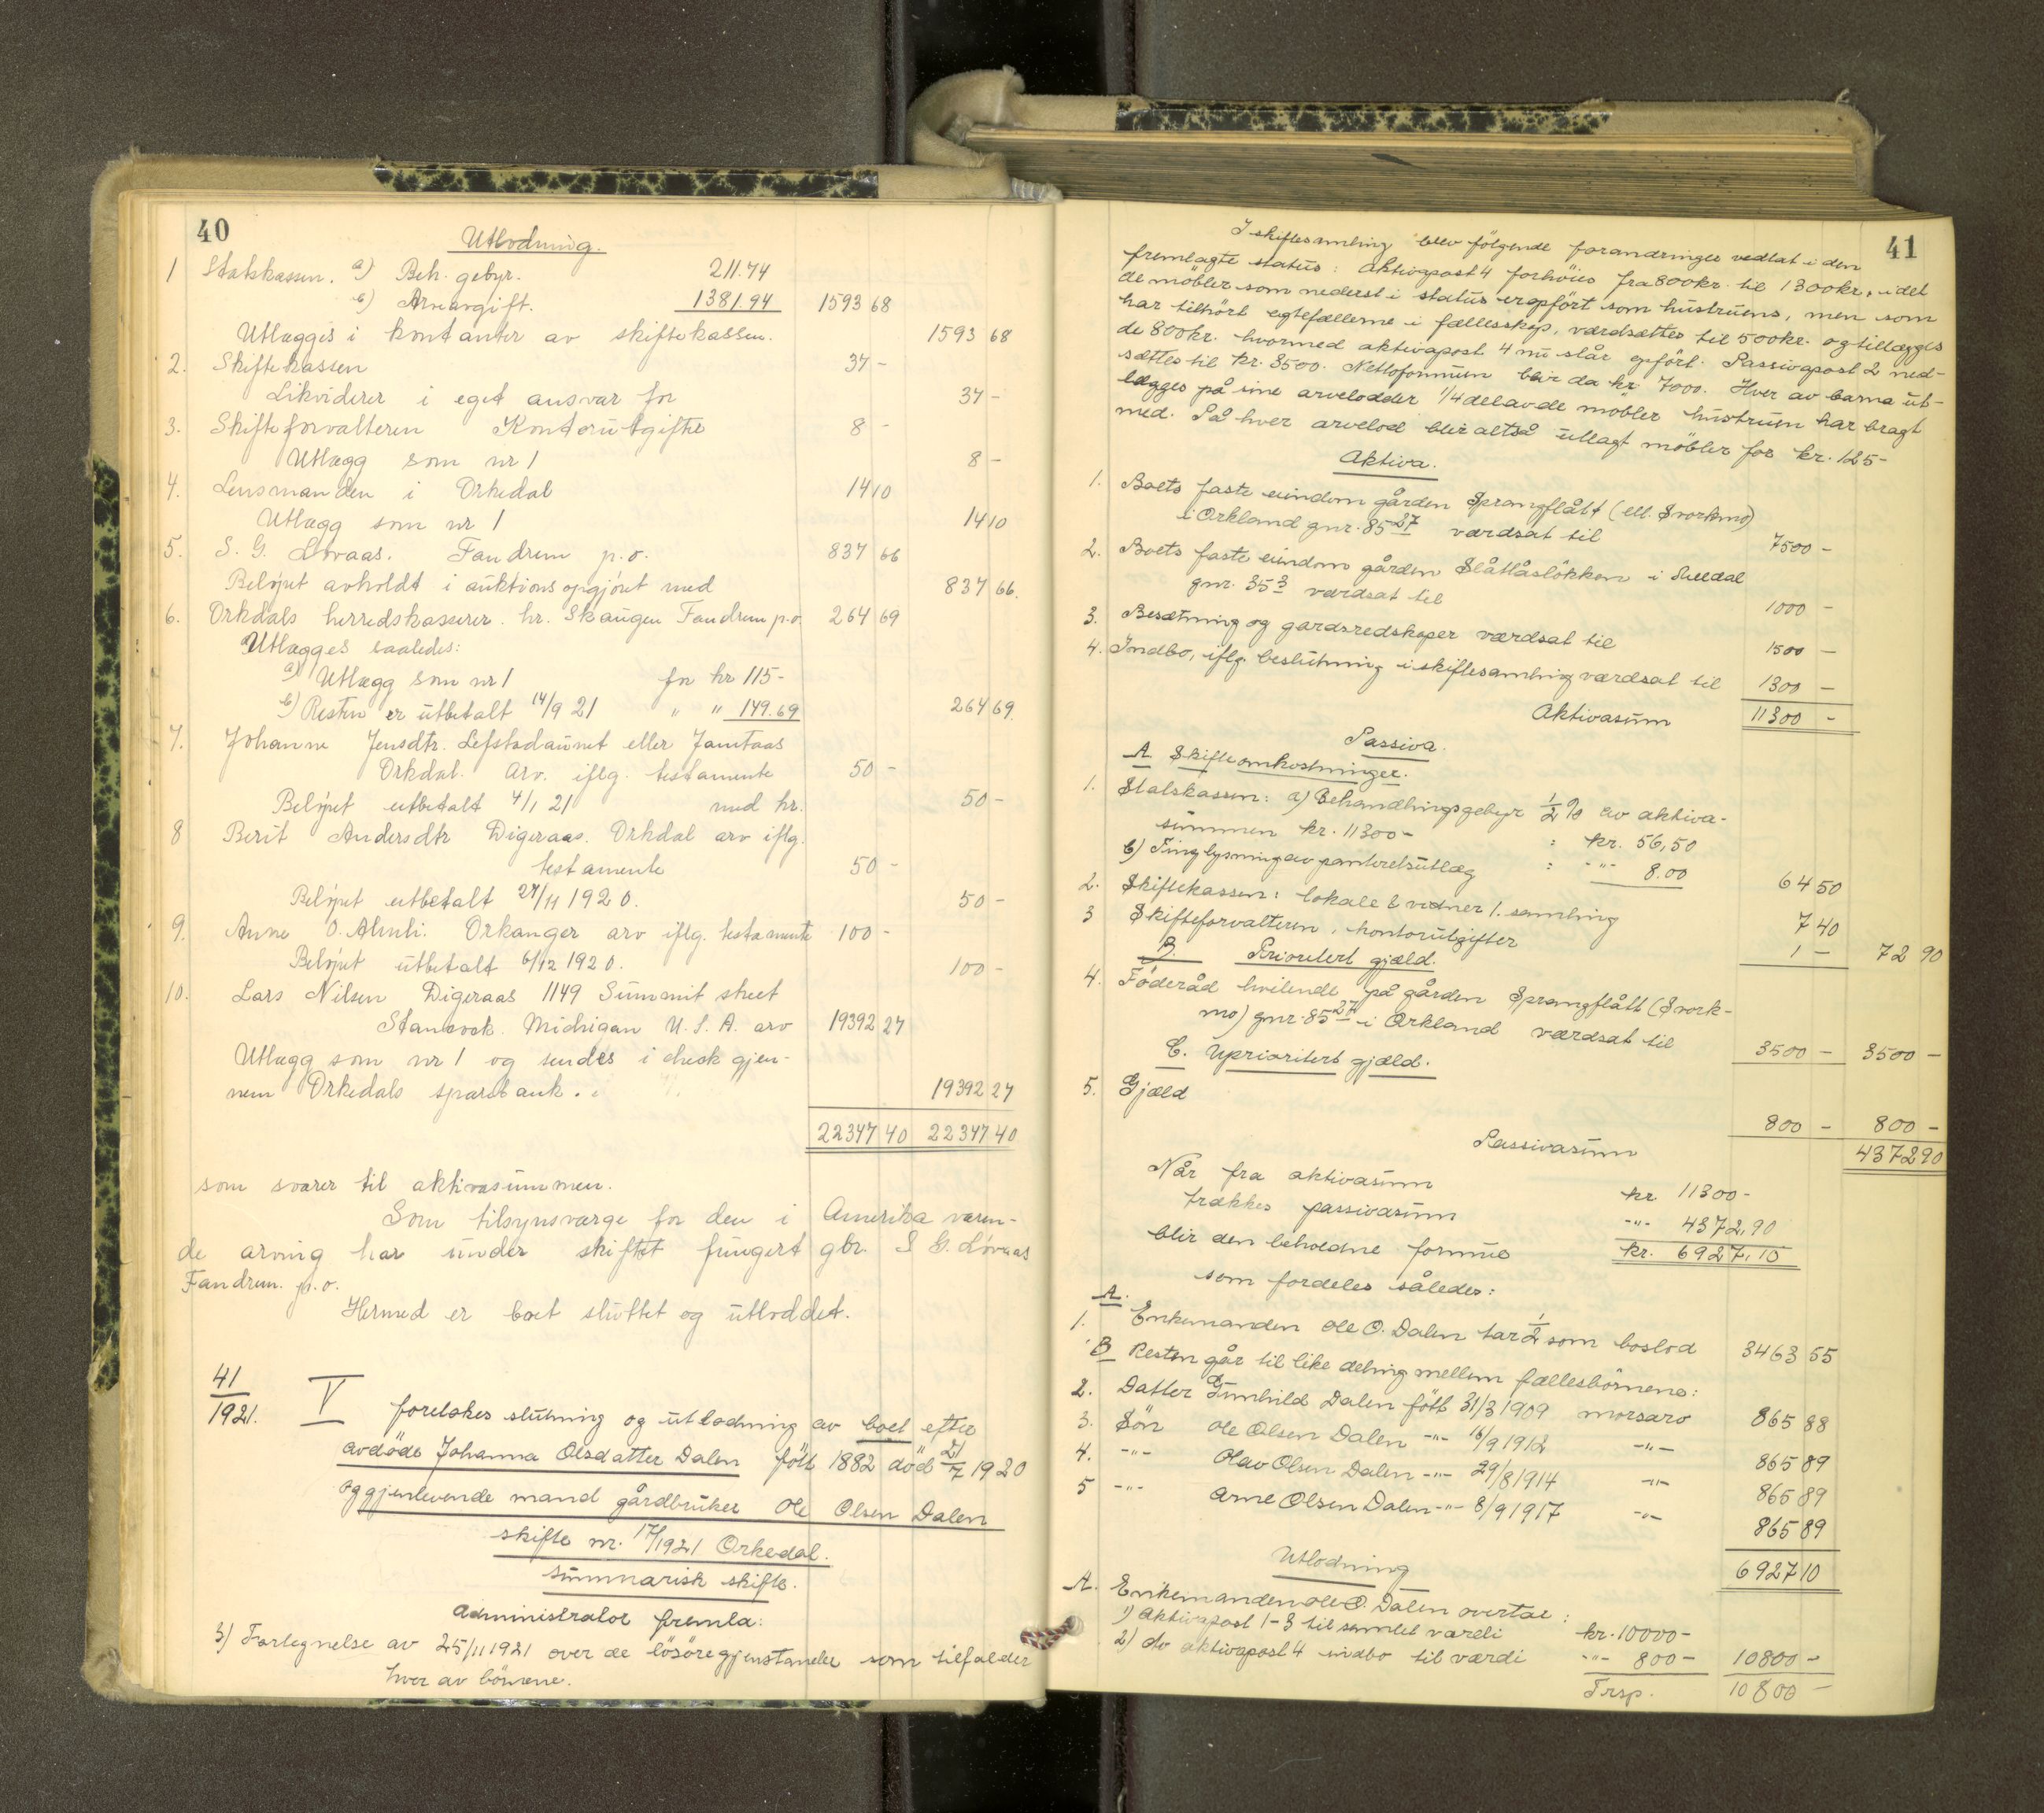 40
Utlodning.
1 Statskassen. a) Beh. gebyr. 211.74
b) Arveavgift. 1381.94 1593 68
Utlægges i kontanter av skiftekassen. 1593 68
2. Skiftekassen 37 -
Likviderer i eget ansvar for 37 -
3. Skifteforvalteren Kontorutgifter 8 -
Utlægg som nr 1 8 -
4. Lensmanden i Orkedal 14 10
Utlægg som nr 1 14 10
5. S. G. Lövaas. Fandrem p.o. 837 66
Belöpet avholdt i auktionsopgjöret med 837 66.
6. Orkdals herredskasserer hr. Skaugen Fandrem p.o. 264 69
Utlægges saaledes:
a) Utlægg som nr 1 for kr 115-
b) Resten er utbetalt 14/9 21 " " 149.69 264 69.
7. Johanne Jensdtr. Lefstadaunet eller Jamtaas
Orkdal. Arv. iflg. testamente 50 -
Belöpet utbetalt 4/1 21 med kr. 50 -
8 Berit Andersdtr Digeraas. Orkdal arv iflg.
testamente 50 -
Belöpet utbetalt 27/11 1920. 50 -
9. Anne O. Almli. Orkanger arv iflg. testamente 100 -
Belöpet utbetalt 6/12 1920. 100 -
10. Lars Nilsen Digeraas 1149 Summit street
Michigan U.S.A. arv 19392 27
Utlægg som nr 1 og sendes i check gjen-
nem Orkedals sparebank. 19392 27
22347 40 22347 40
som svarer til aktivasummen.
Som tilsynsværge for den i Amerika væren-
de arving har under skiftet fungert gbr. S G. Lövaas
Fandrem. p.o.
Hermed er boet sluttet og utloddet.
41
1921. V foretokes slutning og utlodning av boet efter
avdöde Johanna Olsdatter Dalen född 1882 död 21/7 1920
og gjenlevende mand gårdbruker Ole Olsen Dalen
skifte nr. 17/1921 Orkedal.
summarisk skifte.
Administrator fremla:
3) Fortegnelse av 25/11 1921 over de lösöregjenstander som tilfalder
hver av börnene.
41
I skiftesamling blev følgende forandringer vedtat i den
fremlagte status: Aktivapost 4 forhöies fra 800 kr. til 1300 kr., idet
de möbler som nederst i status er opfört som hustruens, men som
har tilhört egtefællerne i fællesskap, værdsættes til 500 kr. og tillægges
de 800 kr. hvormed aktivapost 4 nu står opfört. Passivapost 2 ned-
sættes til kr. 3500. Nettoformuen blir da kr 7000. Hver av barna ut-
lægges på sine arvelodder 1/4 del av de möbler hustruen har bragt
med. På hver arvelod blir altså utlagt möbler for kr. 125-
Aktiva.
1. Boets faste eiendom gården Sprangflått (ell. Svorkmo)
i Orkland gnr. 85 27 værdsat til 7500 -
2. Boets faste eiendom gården Slåttåslökken i
gnr. 35 3 værdsat til 1000 -
3. Besætning og gardsredskaper værdsat til 1500 -
4. Indbo, iflg. beslutning i skiftesamling værdsat til 1300 -
Aktivasum 11300 -
Passiva.
A Skifteomkostninger.
1. Statskassen: a) Behandlingsgebyr 1/2 % av aktiva-
summen kr. 11300- : kr. 56,50
b) Tinglysning av panteretsutlæg : -"- 8.00 64 50
2. Skiftekassen: lokale & vidner 1. samling 7 40
3 Skifteforvalteren, kontorutgifter 1 - 72 90
B. Prioritert gjæld.
4. Föderåd hvilende på gården Sprangflått (Svork-
mo) gnr. 85 27 i Orkland værdsat til 3500 - 3500 -
C. Uprioritert gjæld.
5. Gjæld 800 - 800 -
Passivasum 4372 90
Når fra aktivasum kr 11300-
trækkes passivasum -"- 4372,90
blir den beholdne formue kr. 6927,10
som fordeles således:
A.
1. Enkemanden Ole O. Dalen tar 1/2 som boslod 3463 55
B Resten går til like deling mellem fællesbörnene:
2. Datter Gunhild Dalen född 31/3 1909 morsarv 865 88
3. Sön Ole Olsen Dalen -"- 16/9 1912 -"- 865 89
4. -"- Olav Olsen Dalen -"- 29/8 1914 -"- 865 89
5 -"- Arne Olsen Dalen -"- 8/9 1917 -"- 865 89
6927 10
Utlodning
A. Enkemanden Ole O. Dalen overtar:
1) Aktivapost 1-3 til samlet værdi kr. 10000-
2) Av aktivapost 4 indbo til værdi -"- 800- 10800 -
Trsp. 10800 -